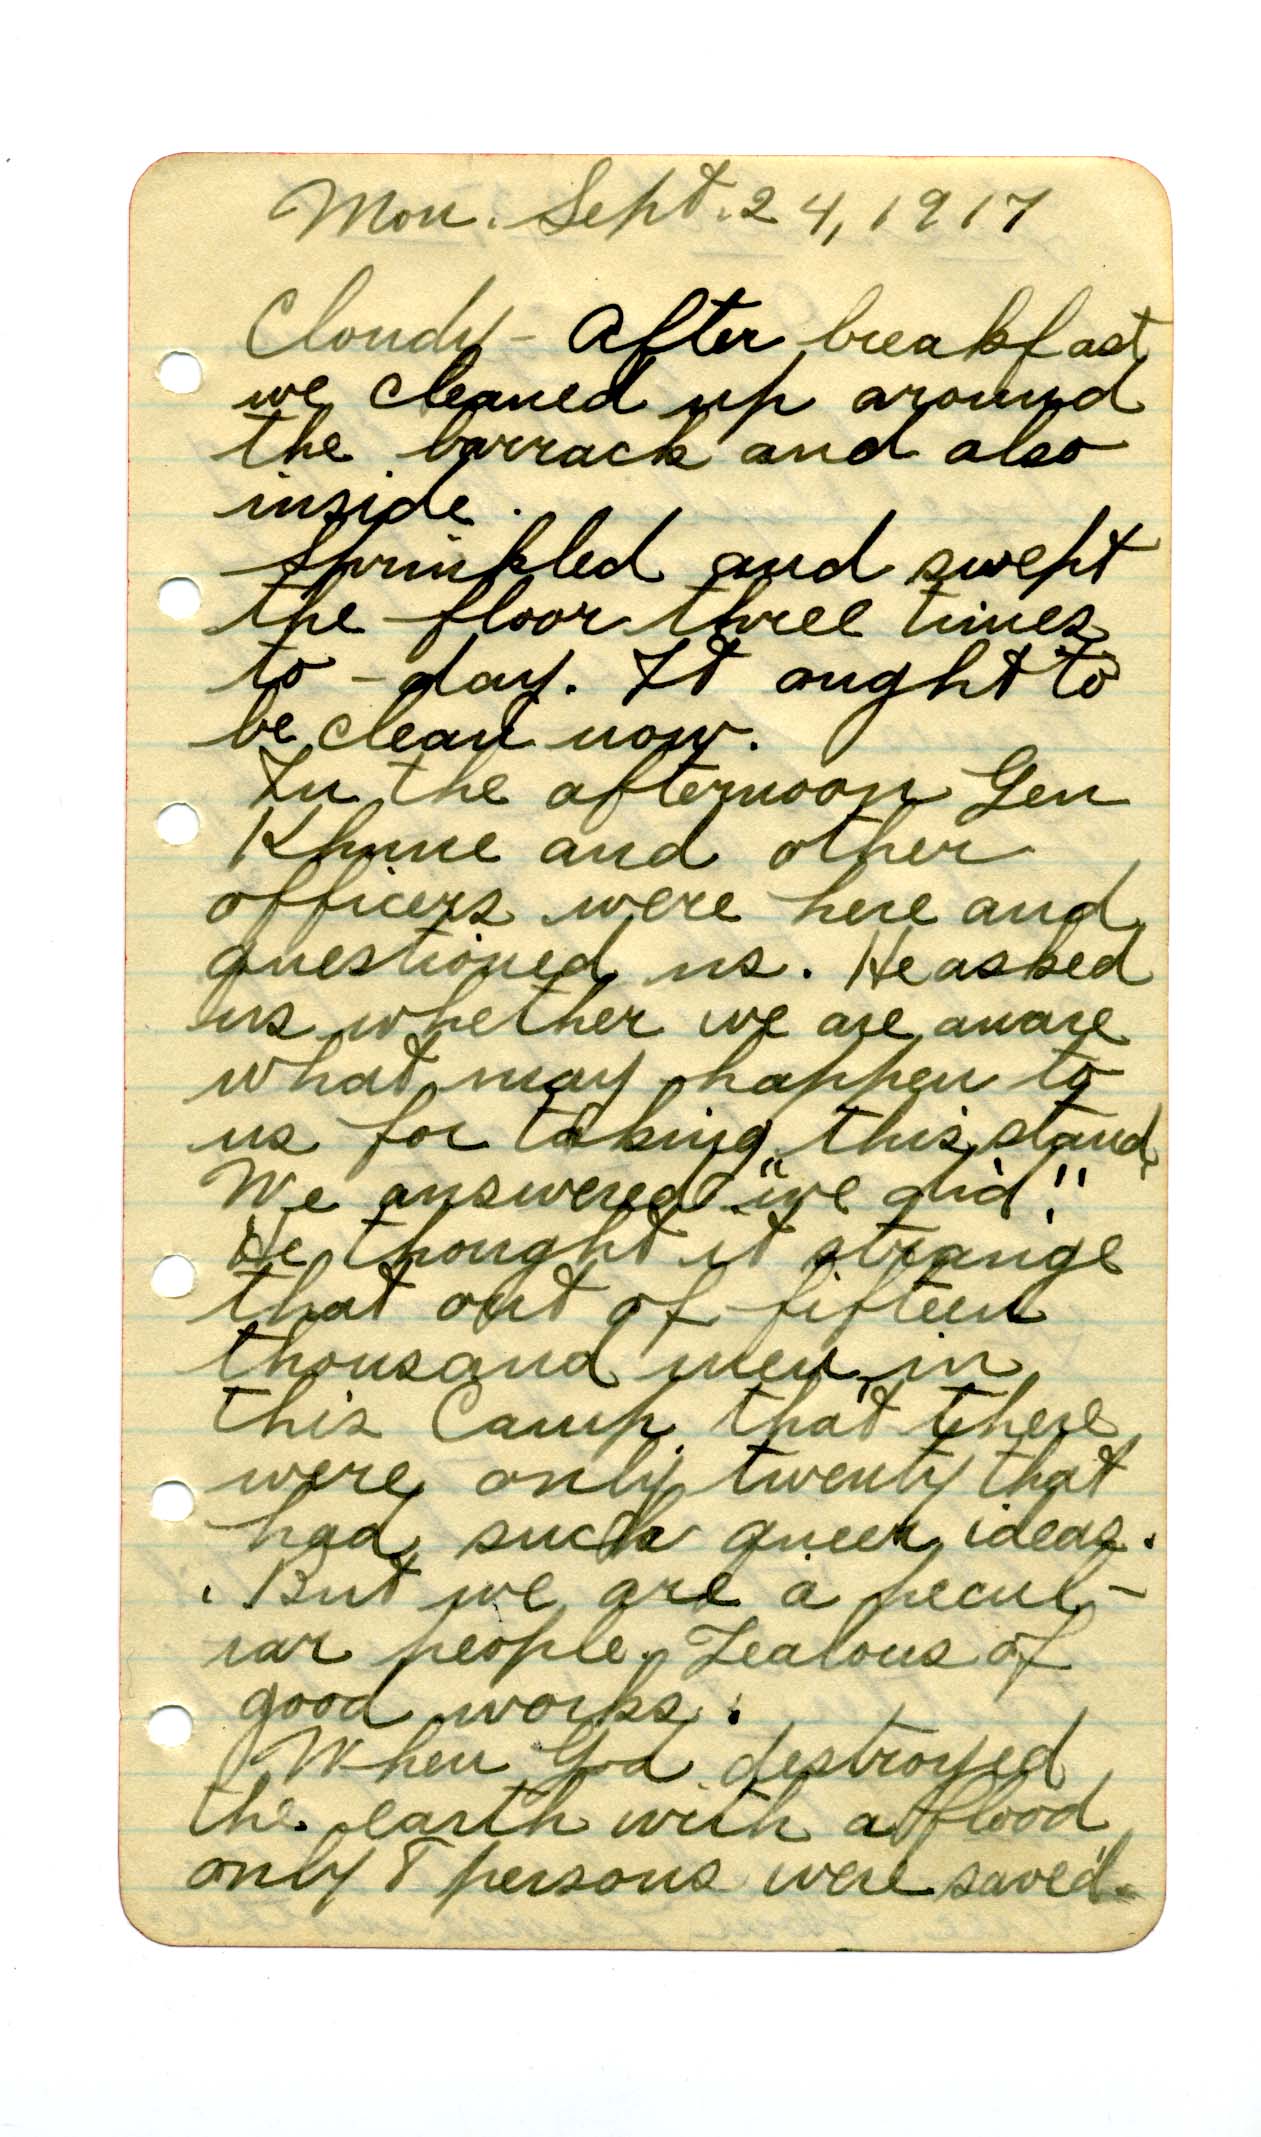 Mon. Sept. 24, 1917
Cloudy - After breakfast
we cleaned up around
the barrack and also
inside.
Sprinkled and swept
the floor three times
to-day. It ought to
be clean now.
In the afternoon Gen
Khune and other
officers were here and
questioned us. He asked
us whether we are aware
what may happen to
us for taking this stand.
We answered "we did".
He thought it strange
that out of fifteen
thousand men in
this Camp that there
were only twenty that
had such queer ideas.
But we are a pecul-
iar people. Zealous of
good works.
When God destroyed
the earth with a flood
only 8 persons were saved.